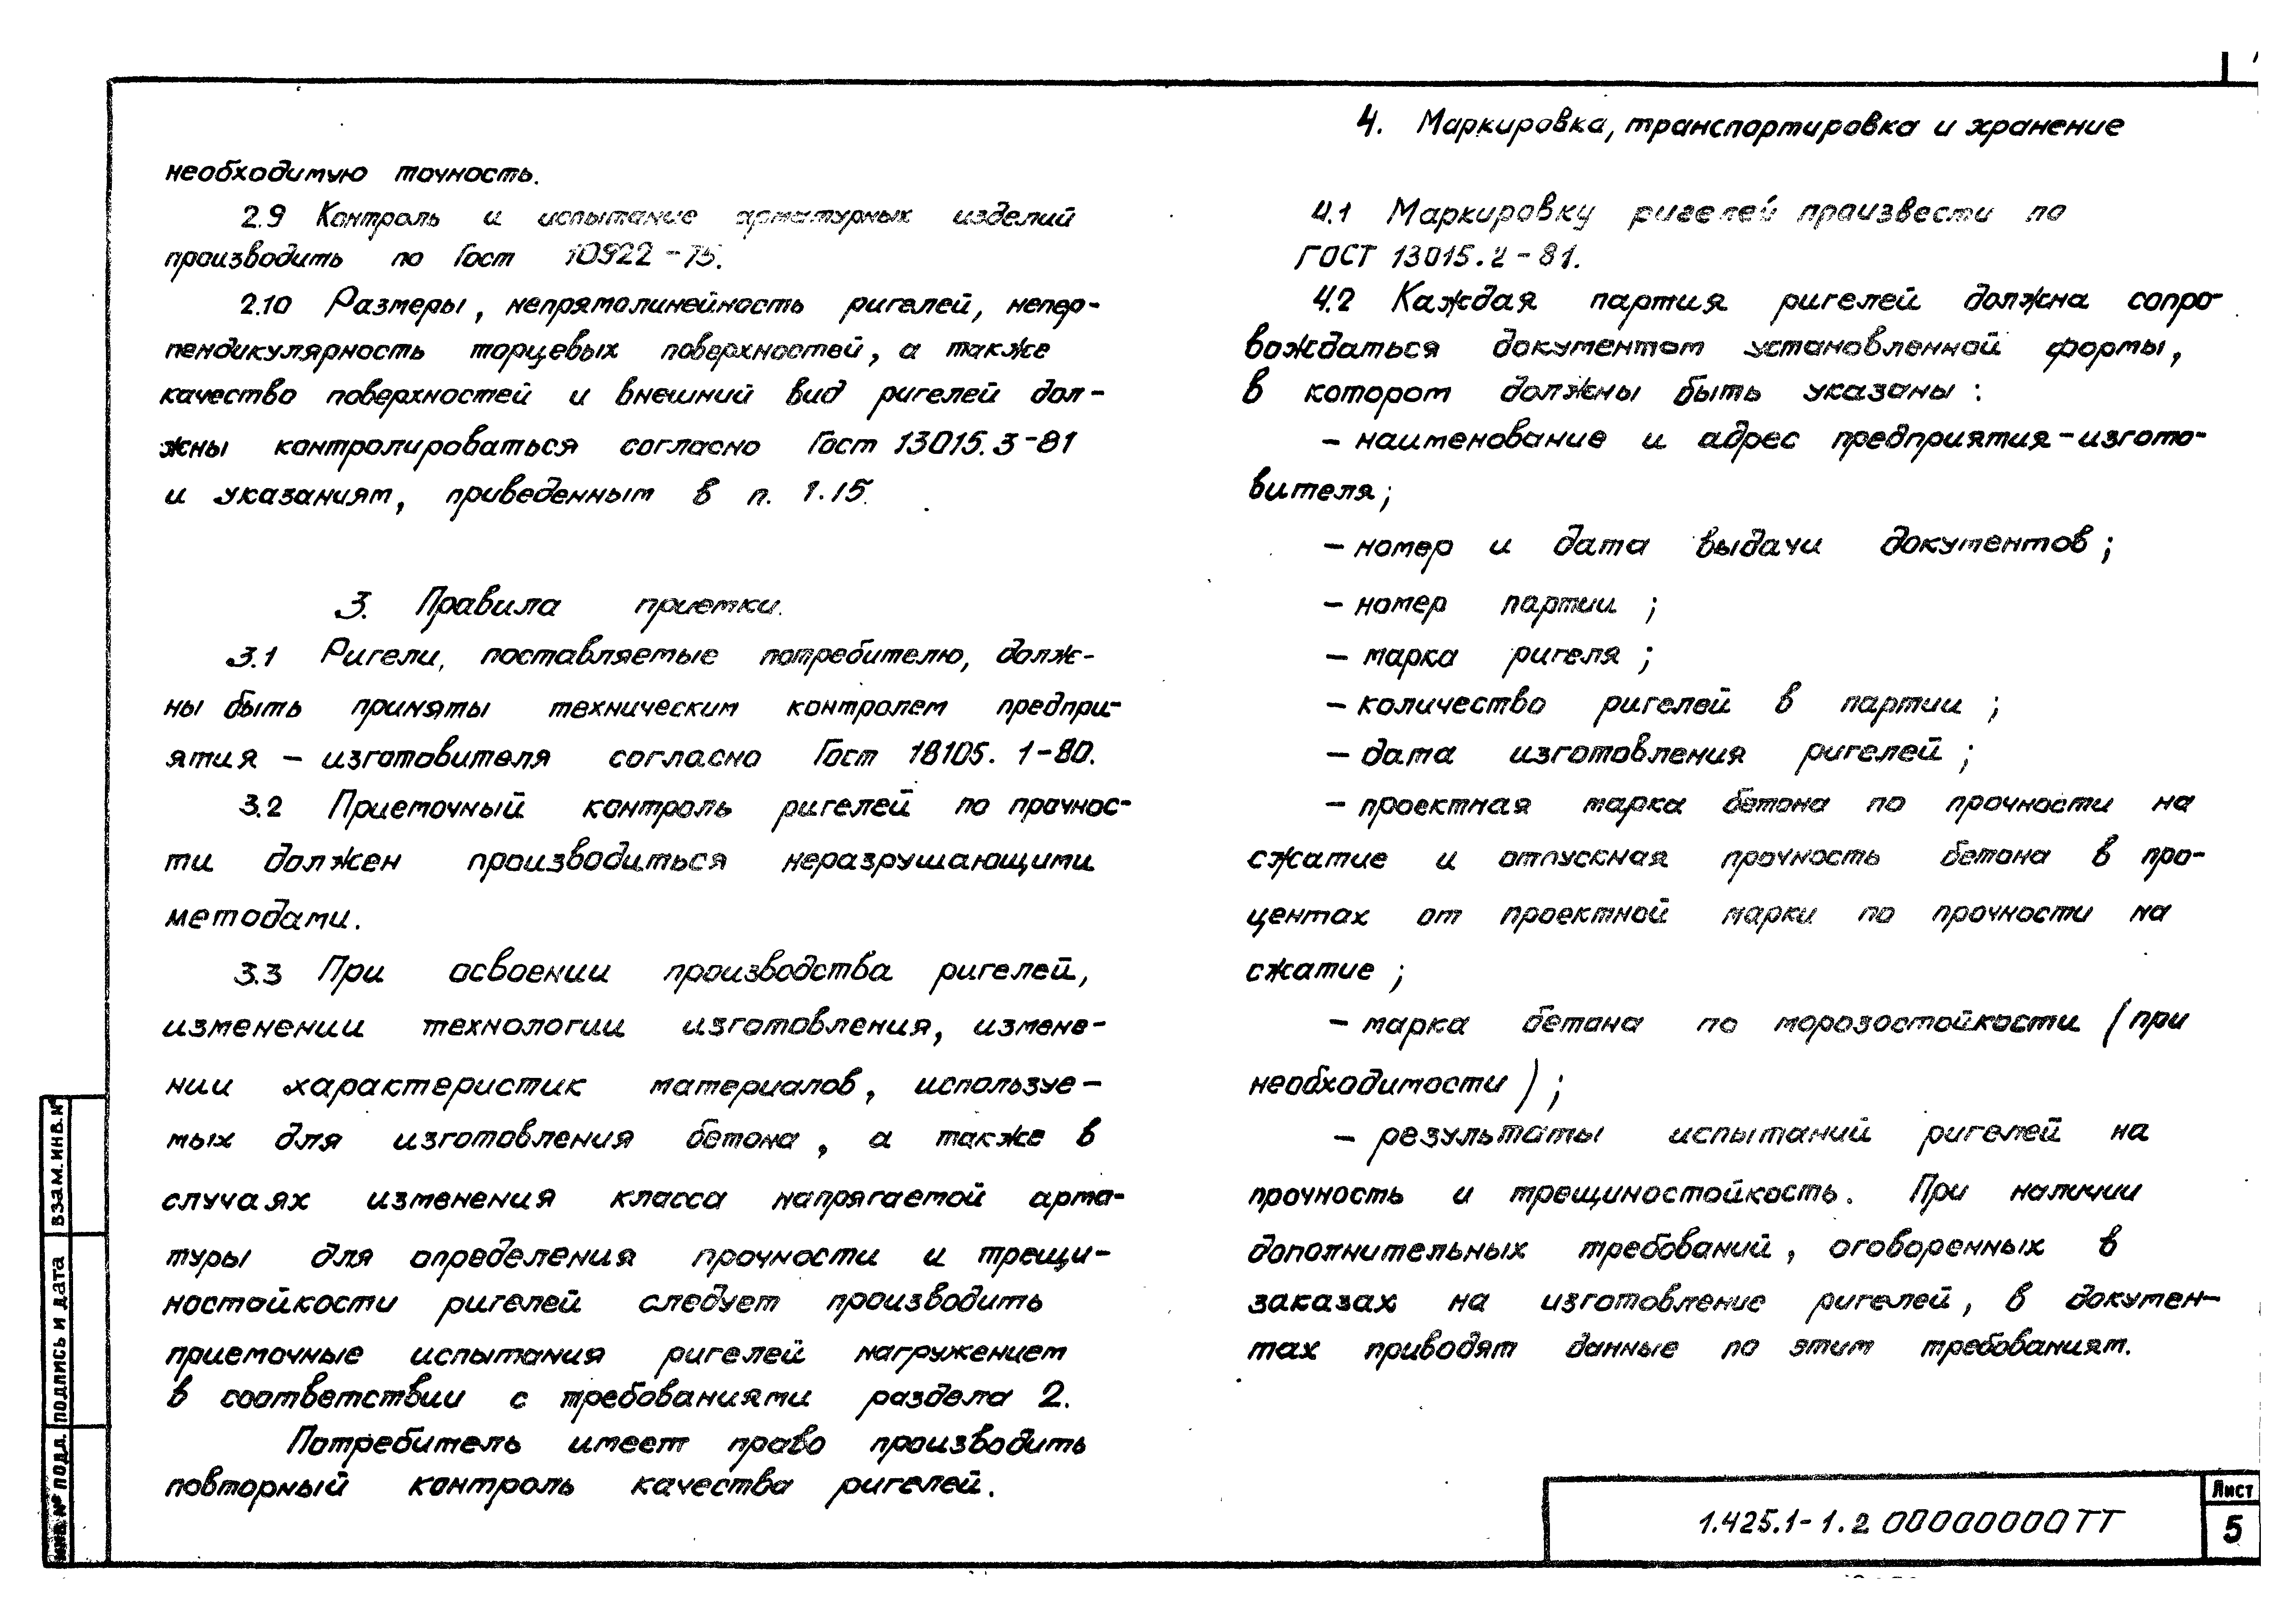 необходимую точность.
2.9 Контроль и испытание арматурных изделий
производить по Гост 10922-75.
2.10 Размеры, непрямолинейность ригелей, непер-
пендикулярность торцевых поверхностей, а также
качество поверхностей и внешний вид ригелей дол-
жны контролироваться согласно Гост 13015.3-81
и указаниям, приведенным в п. 1.15.
3. Правила приемки.
3.1 Ригели, поставляемые потребителю, долж-
ны быть приняты техническим контролем предпри-
ятия – изготовителя согласно Гост 18105.1-80.
3.2 Приемочный контроль ригелей по прочнос-
ти должен производиться неразрушающими
методами.
3.3 При освоении производства ригелей,
изменении технологии изготовления, измене-
нии характеристик материалов, используе-
мых для изготовления бетона, а также в
случаях изменения класса напрягаемой арма-
туры для определения прочности и трещи-
ностойкости ригелей следует производить
приемочные испытания ригелей нагружением
в соответствии с требованиями раздела 2.
Потребитель имеет право производить
повторный контроль качества ригелей.
4. Маркировка, транспортировка и хранение
4.1 Маркировку ригелей произвести по
ГОСТ 13015.2-81.
4.2 Каждая партия ригелей должна сопро-
вождаться документом установленной формы,
в котором должны быть указаны:
– наименование и адрес предприятия-изгото-
вителя;
– номер и дата выдачи документов;
– номер партии;
– марка ригеля;
– количество ригелей в партии;
– дата изготовления ригелей;
– проектная марка бетона по прочности на
сжатие и отпускная прочность бетона в про-
центах от проектной марки по прочности на
сжатие;
– марка бетона по морозостойкости (при
необходимости);
– результаты испытаний ригелей на
прочность и трещиностойкость. При наличии
дополнительных требований, оговоренных в
заказах на изготовление ригелей, в докумен-
тах приводят данные по этим требованиям.
ВЗАМ. ИНВ. №
ПОДПИСЬ И ДАТА
ИНВ. № ПОДЛ.
1.425.1-1.2 00000000ТТ
Лист
5